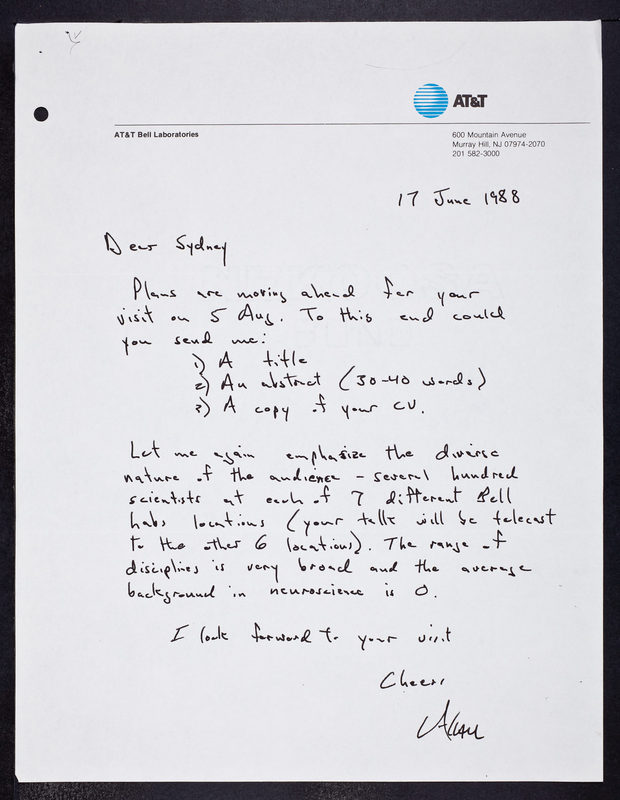 AT&T
AT&T Bell Laboratories
600 Mountain Avenue
Murray Hill, NJ 07974-2070
201 582-3000
17 June 1988
Dear Sydney
Plans are moving ahead for your
visit on 5 Aug. To this end could
you send me:
1) A title
2) An abstract (30-40 words)
3) A copy of your CV.
Let me again emphasize the diverse
nature of the audience - several hundred
scientists at each of 7 different Bell
Labs locations (your talk will be telecast
to the other 6 locations). The range of
disciplines is very broad and the average
background in neuroscience is 0.
I look forward to your visit
Cheers
Allan